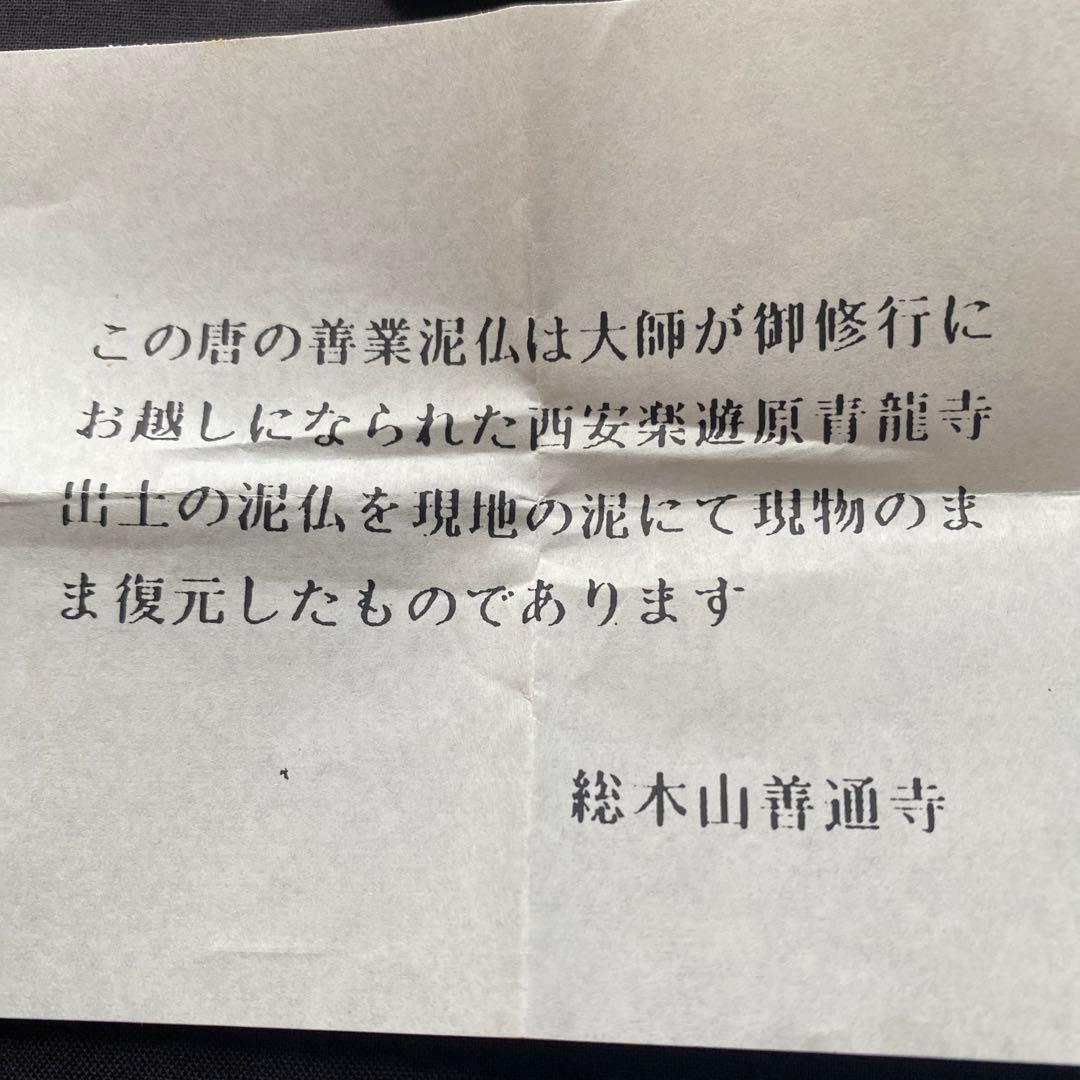 この唐の善業泥仏は大師が御修行に
お越しになられた西安楽遊原青龍寺
出土の泥仏を現地の泥にて現物のま
ま復元したものであります
総本山善通寺